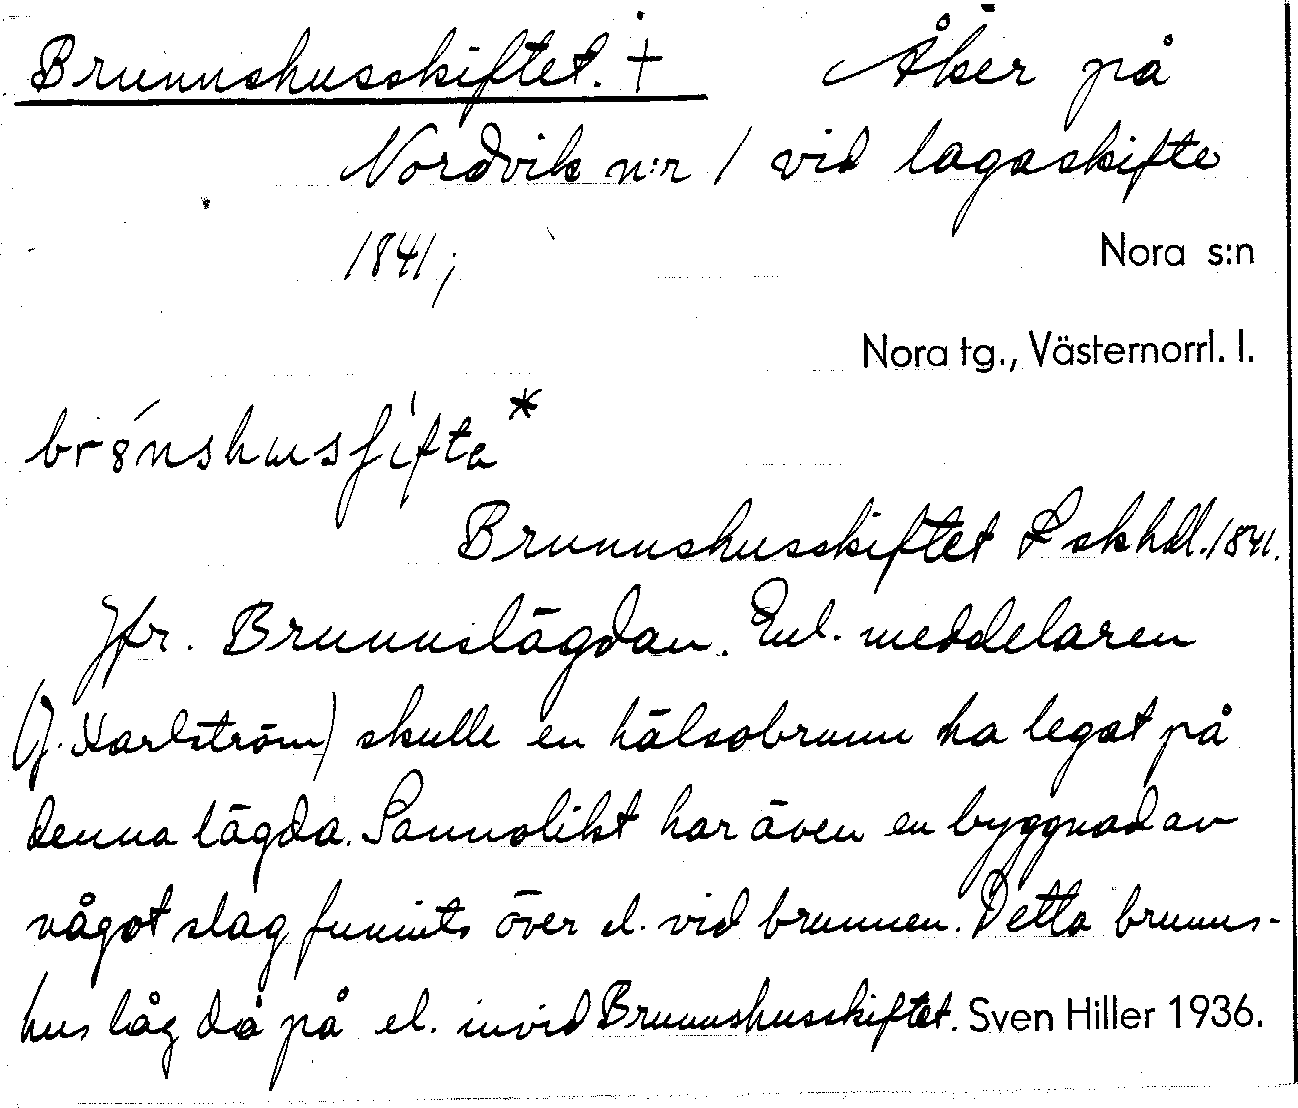 Brunnshusskiftet. † Åker på
Nordvik n:r 1 vid lagaskifte
1841;
Nora s:n
Nora tg., Västernorrl. l.
brønshusʃifta*
Brunnshusskiftet L skhdl. 1841.
Jfr. Brunnslägdan. Enl. meddelaren
(J. Karlström) skulle en hälsobrunn ha legat på
denna lägda. Sannolikt har även en byggnad av
något slag funnits över el. vid brunnen. Detta brunns-
hus låg då på el. invid Brunnshusskiftet. Sven Hiller 1936.